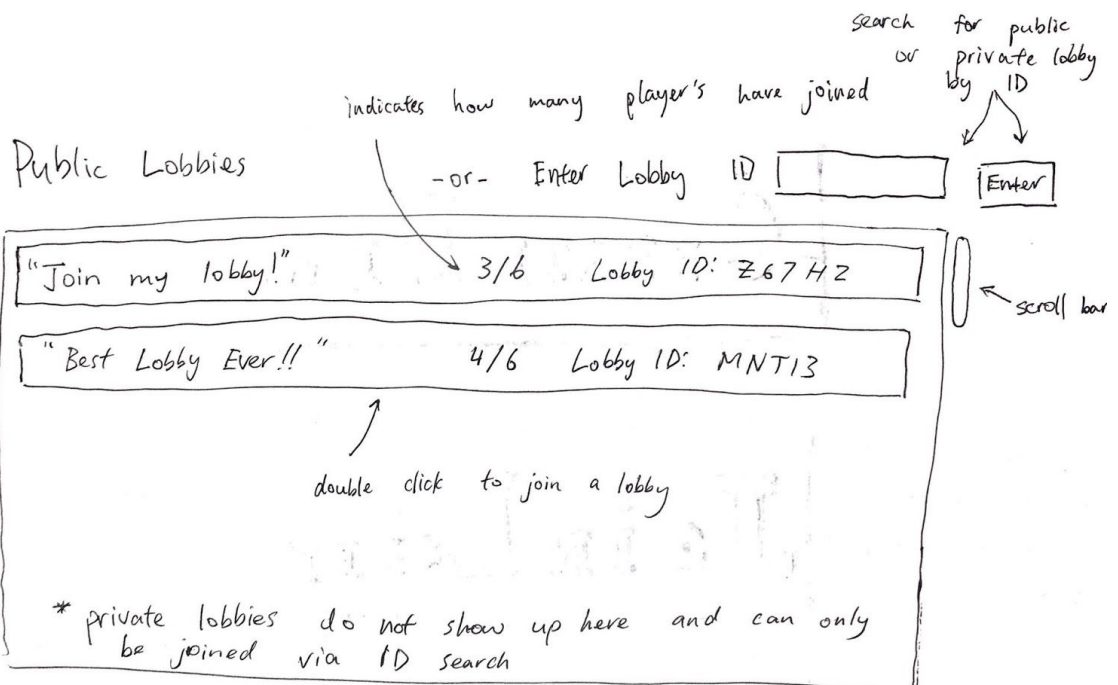 search for public
or private lobby
by ID
indicates how many player's have joined
Public Lobbies -or- Enter Lobby ID Enter
"Join my lobby!" 3/6 Lobby ID: Z67HZ
scroll bar
"Best Lobby Ever!!" 4/6 Lobby ID: MNT13
double click to join a lobby
* private lobbies do not show up here and can only
be joined via ID search